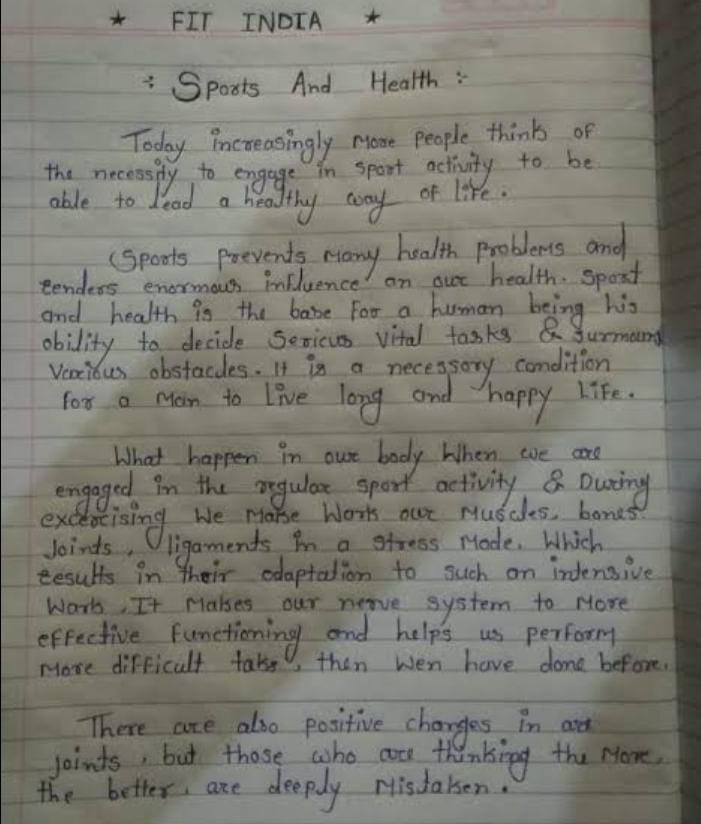 ★ FIT INDIA ★
÷ Sports And Health ÷
Today increasingly More people think of
the necessity to engage in sport activity to be
able to lead a healthy way of life.
Sports prevents Many health problems and
renders enormous influence on our health. Sport
and health is the base for a human being his
ability to decide Serious Vital tasks & Surmound
Various obstacles. It is a necessary condition
for a Man to Live long and happy Life.
What happen in our body When we are
engaged in the regular sport activity & During
excercising We Make Work our Muscles, bones
Joints, ligaments in a stress Mode. Which
results in their adaptation to such an intensive
Work, It Makes our nerve system to More
effective functioning and helps us perform
More difficult taks, then Wen have done before.
There are also positive changes in are
joints, but those who are thinking the More,
the better, are deeply Mistaken.